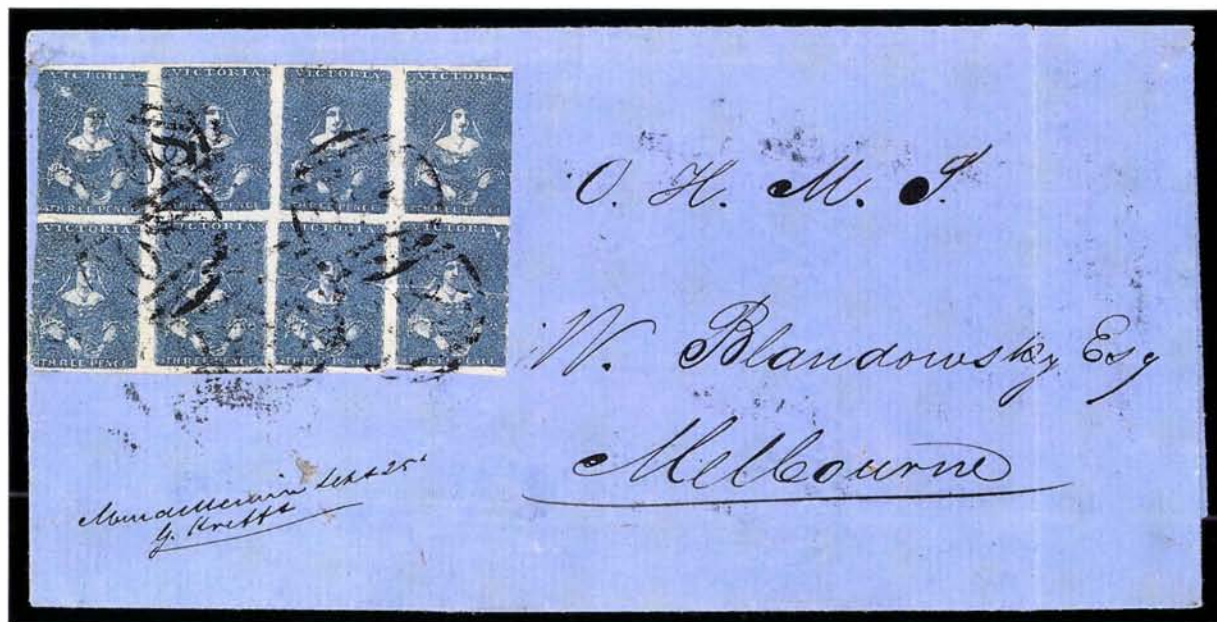 VICTORIA VICTORIA VICTORIA VICTORIA
THREE PENCE THREE PENCE THREE PENCE THREE PENCE
VICTORIA VICTORIA VICTORIA VICTORIA
THREE PENCE THREE PENCE THREE PENCE THREE PENCE
O. H. M. S.
W. Blandowsky Esq
Melbourne
Sept 25
G. Krefft